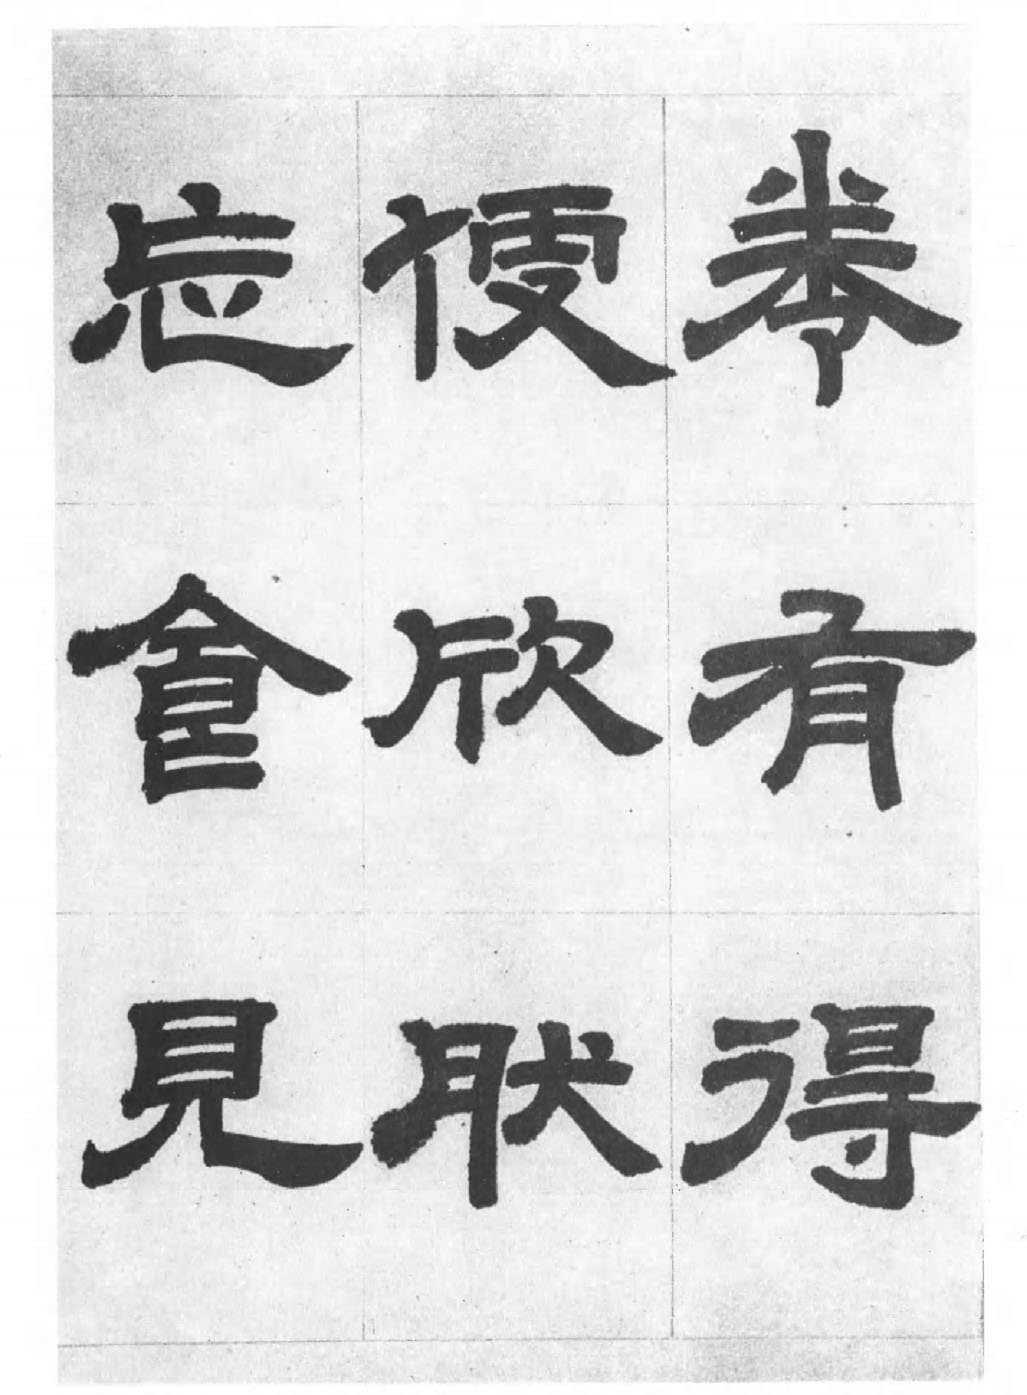 卷有得
便欣肰
忘食見